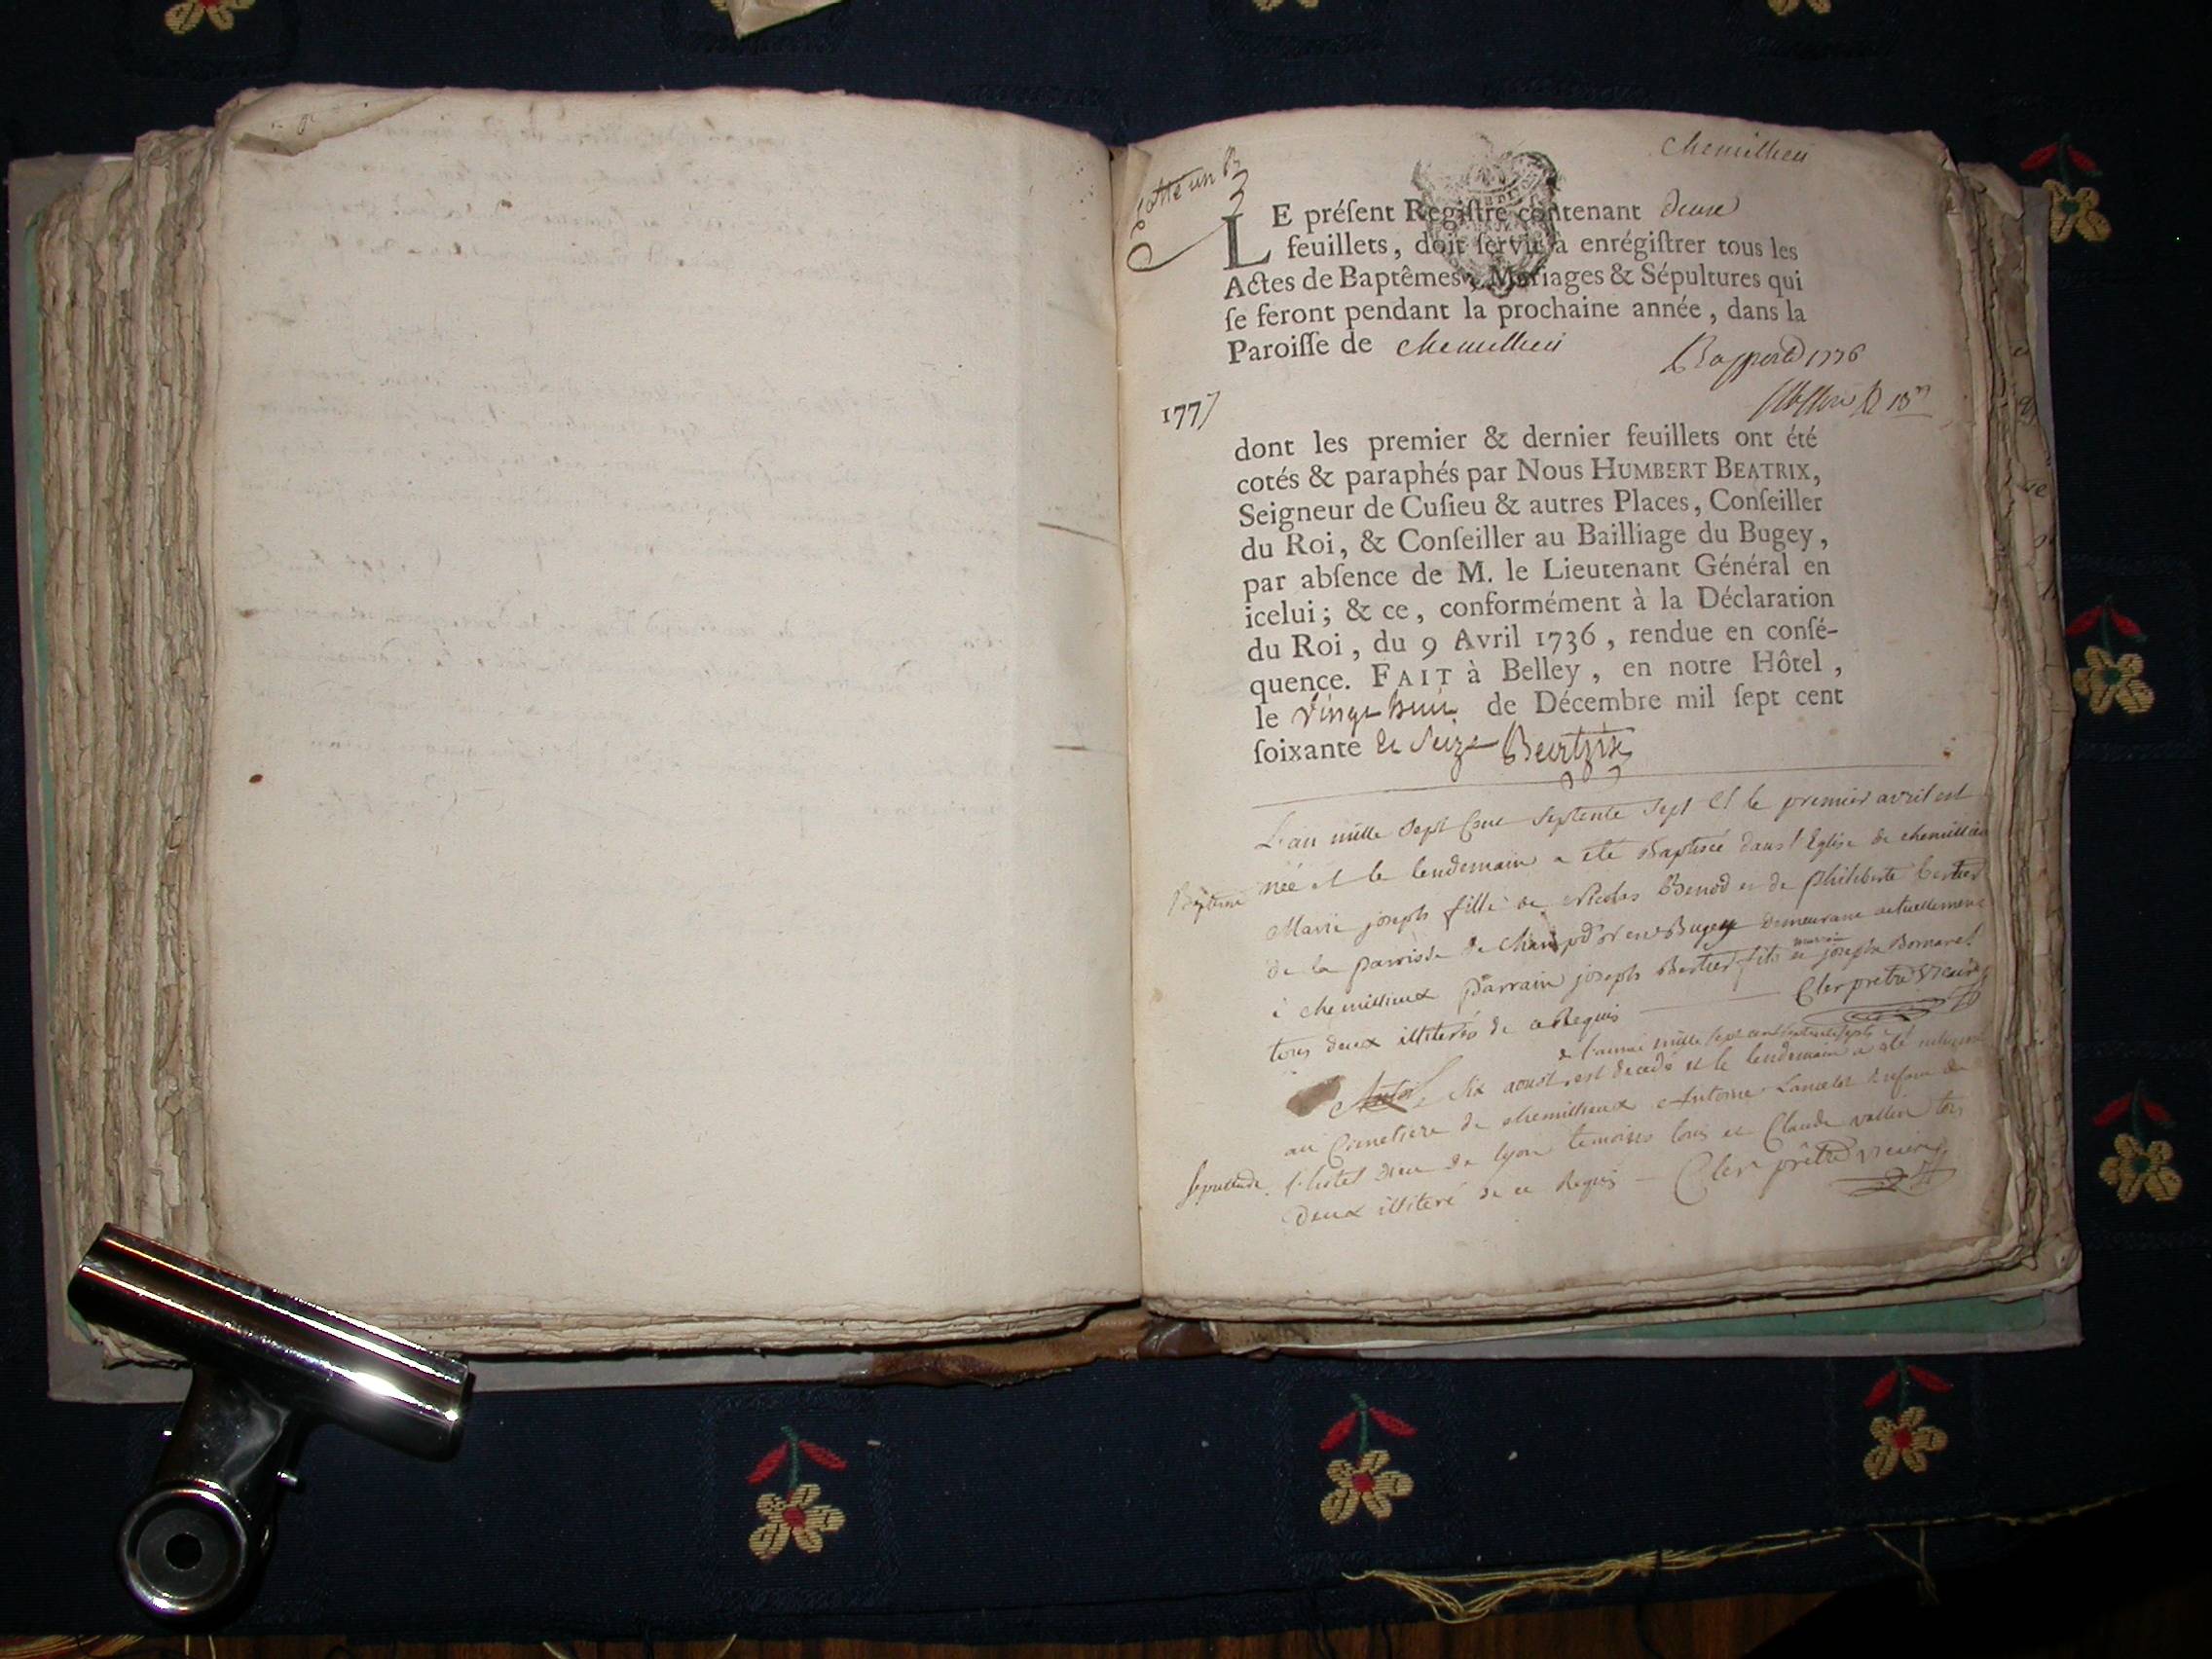 chemillieu
Cotté un
LE préſent Regiſtre contenant deux
feuillets, doit ſervir à enrégiſtrer tous les
Actes de Baptêmes, Mariages & Sépultures qui
ſe feront pendant la prochaine année, dans la
Paroiſſe de chemillieu
Rapporté 1776
1777
dont les premier & dernier feuillets ont été
cotés & paraphés par Nous HUMBERT BEATRIX,
Seigneur de Cuſieu & autres Places, Conſeiller
du Roi, & Conſeiller au Bailliage du Bugey,
par abſence de M. le Lieutenant Général en
icelui; & ce, conformément à la Déclaration
du Roi, du 9 Avril 1736, rendue en conſé-
quence. FAIT à Belley, en notre Hôtel,
le vingt huit de Décembre mil ſept cent
ſoixante et Seize Beatrix
L'an mille Sept Cent Septente Sept et le premier avril est
Bapteme née et le lendemain a été Baptisée dans l'Eglise de chemillieu
Marie joseph fille de Nicolas Benod et de philiberte bertier
de la parroisse de Champd'or en Bugey demeurant actuellement
à chemillieux parrain joseph Bertier fils et marraine josephe Bornarel
tous deux illiterés de ce Requis Cler prêtre vicaire
& l'année mille sept cent septente sept
Six aoust est decedé et le lendemain a été inhumé
au Cimetiere de chemillieux Antoine Lancelot enfant de
Sepulture l'hotel Dieu de lyon temoins louis et Claude vallin tous
deux illiteré de ce Requis Cler prêtre vicaire